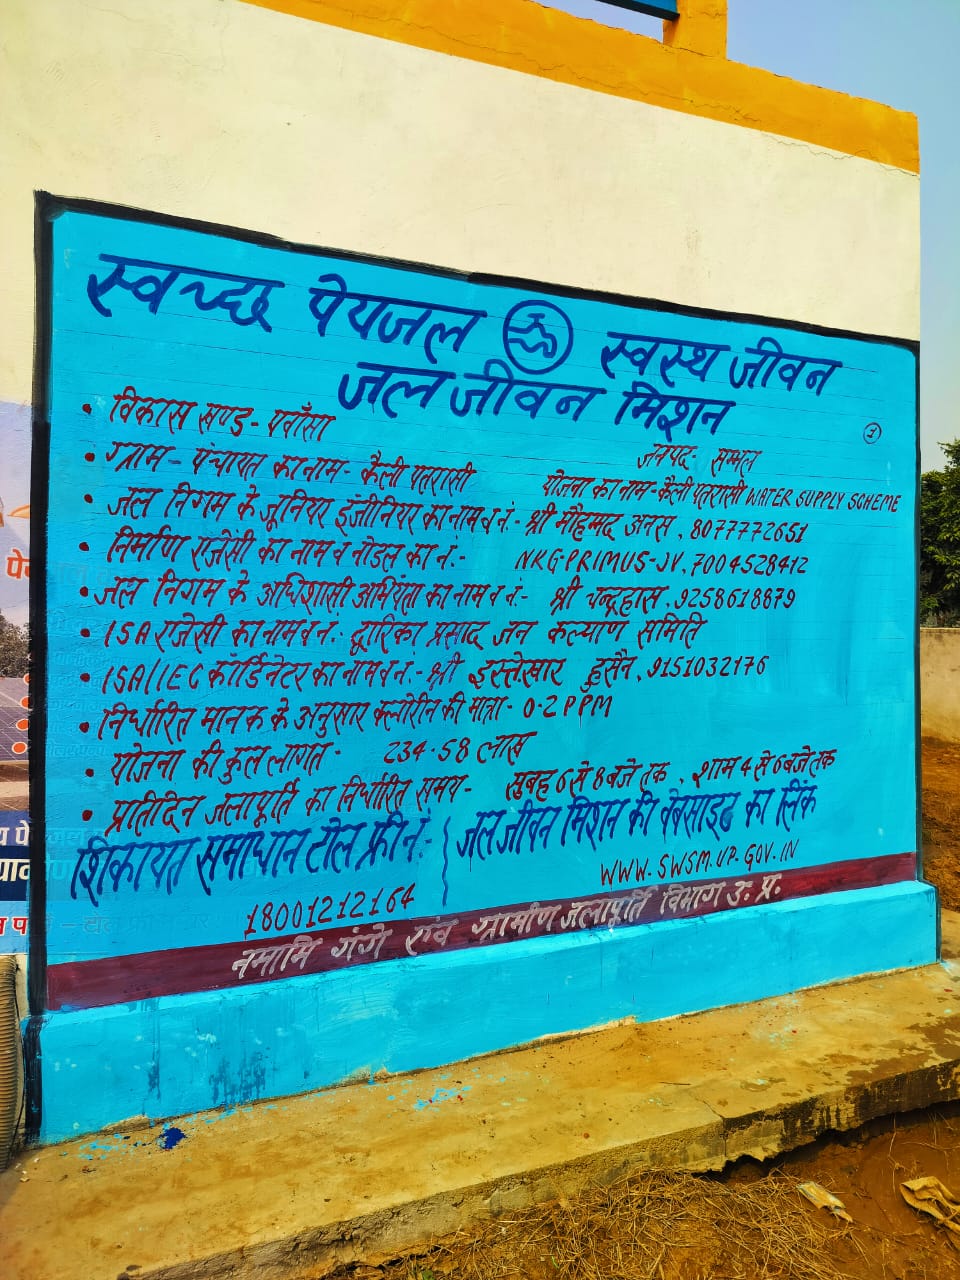 स्वच्छ पेयजल स्वस्थ जीवन
जल जीवन मिशन
1
• विकास खण्ड - पवाँसा
जनपद - सम्भल
• ग्राम - पंचायत का नाम - कैली पतरासी
योजना का नाम - कैली पतरासी WATER SUPPLY SCHEME
• जल निगम के जूनियर इंजीनियर का नाम व नं. - श्री मौहम्मद अनस, 8077772651
• निर्माण एजेंसी का नाम व नोडल का नं. - NKG-PRIMUS-JV, 7004528412
• जल निगम के अधिशासी अभियंता का नाम व नं. - श्री चन्द्रहास, 9258618879
• ISA एजेंसी का नाम व नं. - द्वारिका प्रसाद जन कल्याण समिति
• ISA/IEC कॉर्डिनेटर का नाम व नं. - श्री इस्तेखार हुसैन, 9151032176
• निर्धारित मानक के अनुसार क्लोरीन की मात्रा - 0.2 PPM
• योजना की कुल लागत - 234.58 लाख
• प्रतिदिन जलापूर्ति का निर्धारित समय - सुबह 6 से 8 बजे तक, शाम 4 से 6 बजे तक
शिकायत समाधान टोल फ्री नं. -
18001212164
जल जीवन मिशन की वेबसाइट का लिंक
WWW.SWSM.UP.GOV.IN
नमामि गंगे एवं ग्रामीण जलापूर्ति विभाग उ. प्र.